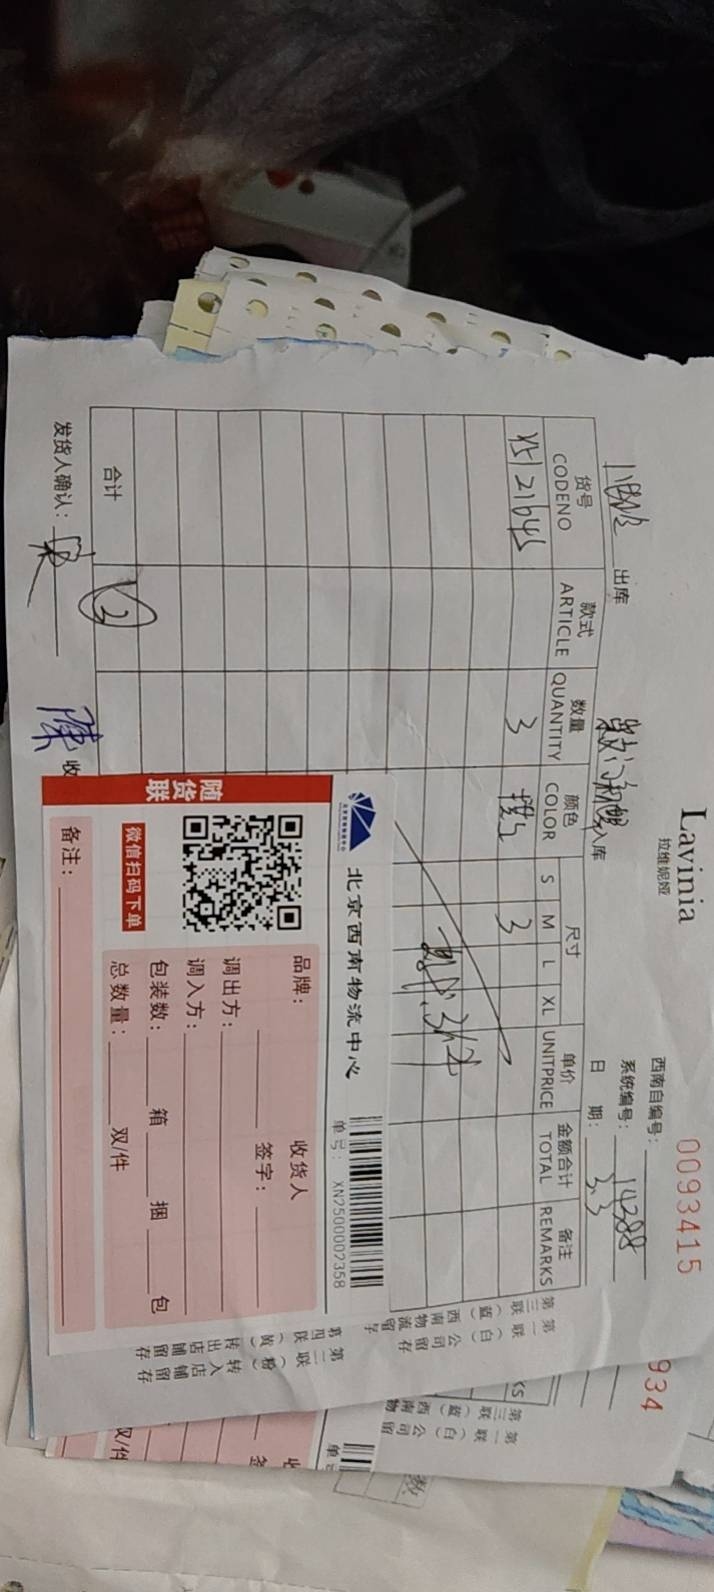 Lavinia
拉维妮娅
0093415
西南自编号：
系统编号：14388
日 期：3.3
出库
入库
货号 款式 数量 颜色 尺寸 单价 金额合计 备注
CODENO ARTICLE QUANTITY COLOR S M L XL UNITPRICE TOTAL REMARKS
Y5121645 3 3
合计 3
发货人确认：
陈
收
第一联（白）公司留存
第二联（粉）转入店铺留存
第三联（蓝）西南物流留
第四联（黄）转出店铺留存
北京西南物流中心
单号： XN2500002358
随货联
微信扫码下单
品牌：
收货人
签字：
调出方：
调入方：
包装数： 箱 捆 包
总数量： 双/件
备注：
934
KS
第一联（白）公司留
第三联（蓝）西南物
单号
双/件
数